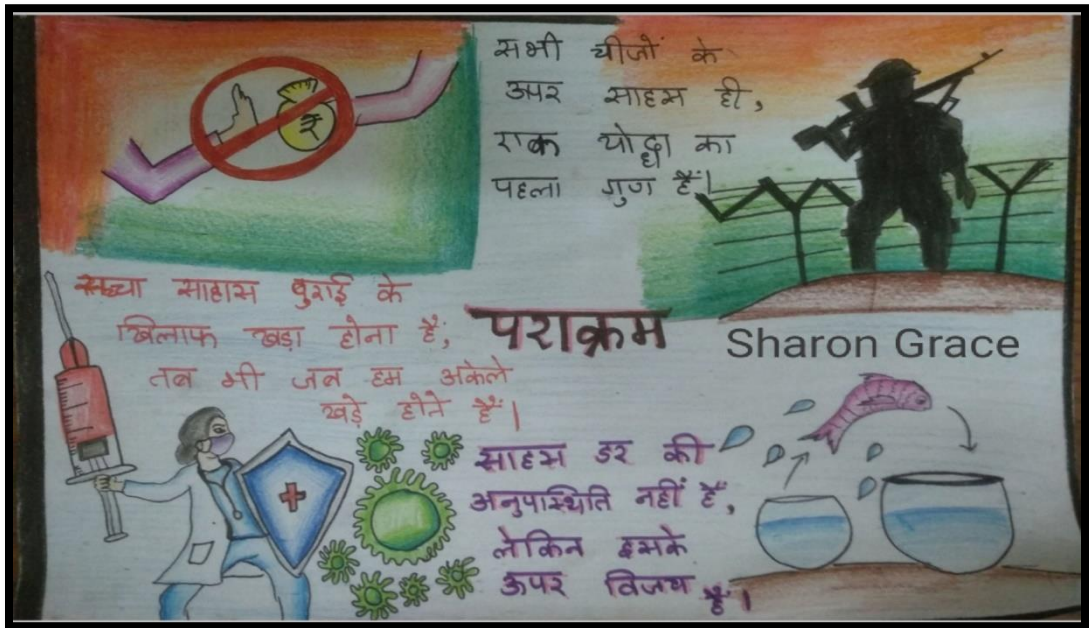 सभी चीजों के
ऊपर साहस ही,
एक योद्धा का
पहला गुण हैं।
₹
सच्चा साहास बुराई के
खिलाफ खड़ा होना हैं,
तब भी जब हम अकेले
खड़े होते हैं।
पराक्रम
Sharon Grace
साहस डर की
अनुपास्थिति नहीं हैं,
लेकिन इसके
ऊपर विजय हैं।